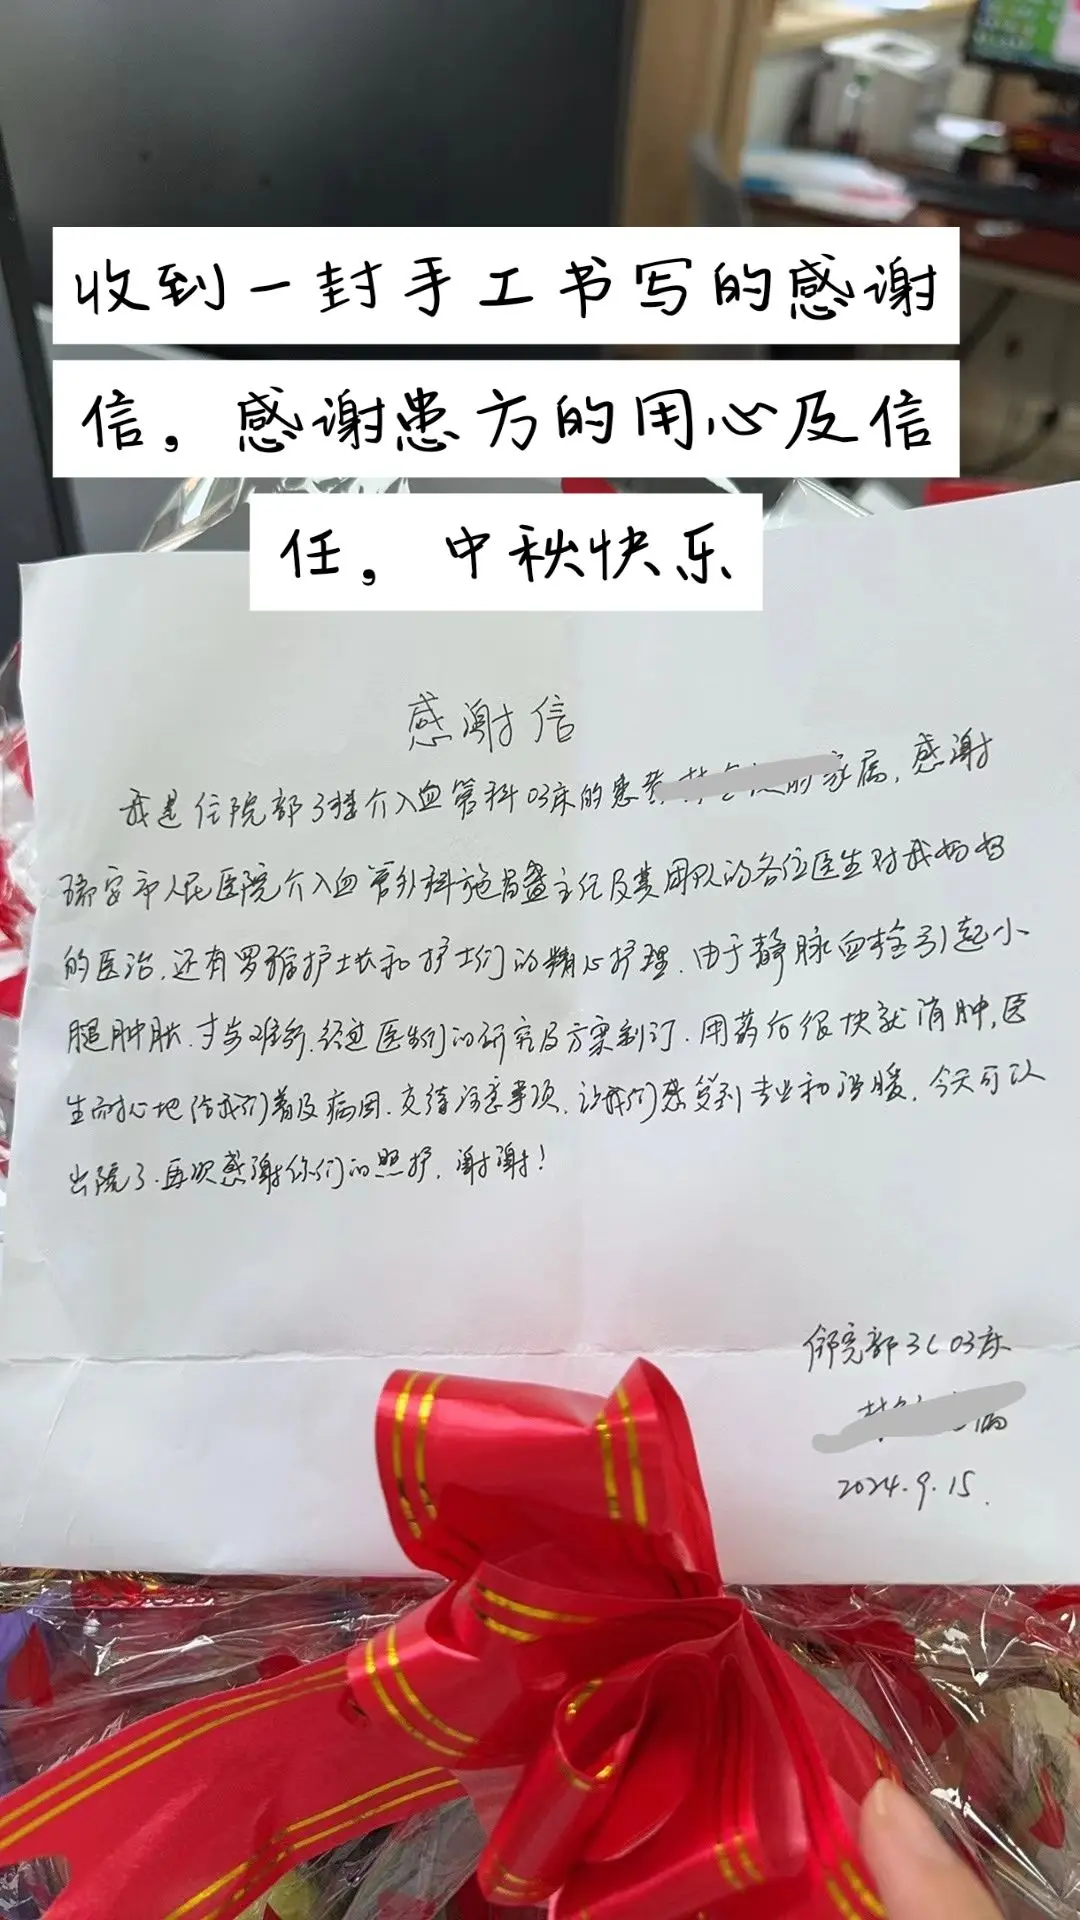 收到一封手工书写的感谢
信，感谢患方的用心及信
任，中秋快乐
感谢信
我是住院部3楼介入血管科03床的患者家属，感谢
瑞安市人民医院介入血管外科施昌盛主任及其团队的各位医生对我妈妈
的医治，还有罗护士长和护士们的精心护理．由于静脉血栓引起小
腿肿胀．寸步难行．经过医生们的研究及方案制订．用药后很快就消肿，医
生耐心地给我们普及病因．交待注意事项．让我们感受到专业和温暖．今天可以
出院了．再次感谢你们的照护．谢谢！
住院部3L03床
2024.9.15.